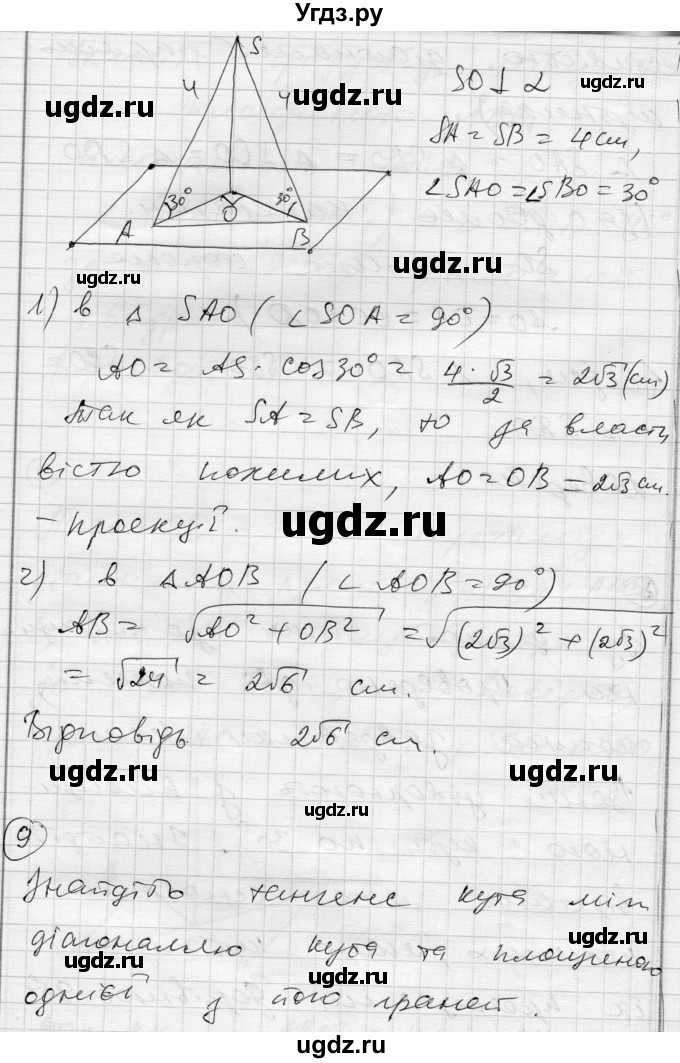 Угдз.ру
S
4
4
SO ⊥ α
SA = SB = 4 см,
∠SAO = ∠SBO = 30°
30°
30°
O
A
B
ugdz.ru
ugdz.ru
ugdz.ru
ugdz.ru
ugdz.ru
1) в △ SAO (∠SOA = 90°)
AO = AS · cos 30° = 4 · √3 / 2 = 2√3 (см)
Так як SA = SB, то за власти
вістю похилих, AO = OB = 2√3 см.
– проекції.
ugdz.ru
2) в △AOB (∠AOB = 90°)
AB = √AO² + OB² = √(2√3)² + (2√3)²
= √24 = 2√6 см.
Відповідь 2√6 см.
ugdz.ru
ugdz.ru
ugdz.ru
9
Знайдіть тангенс кута між
діагоналлю куба та площиною
однієї з його граней.
ugdz.ru
ugdz.ru
ugdz.ru
Угдз.ру